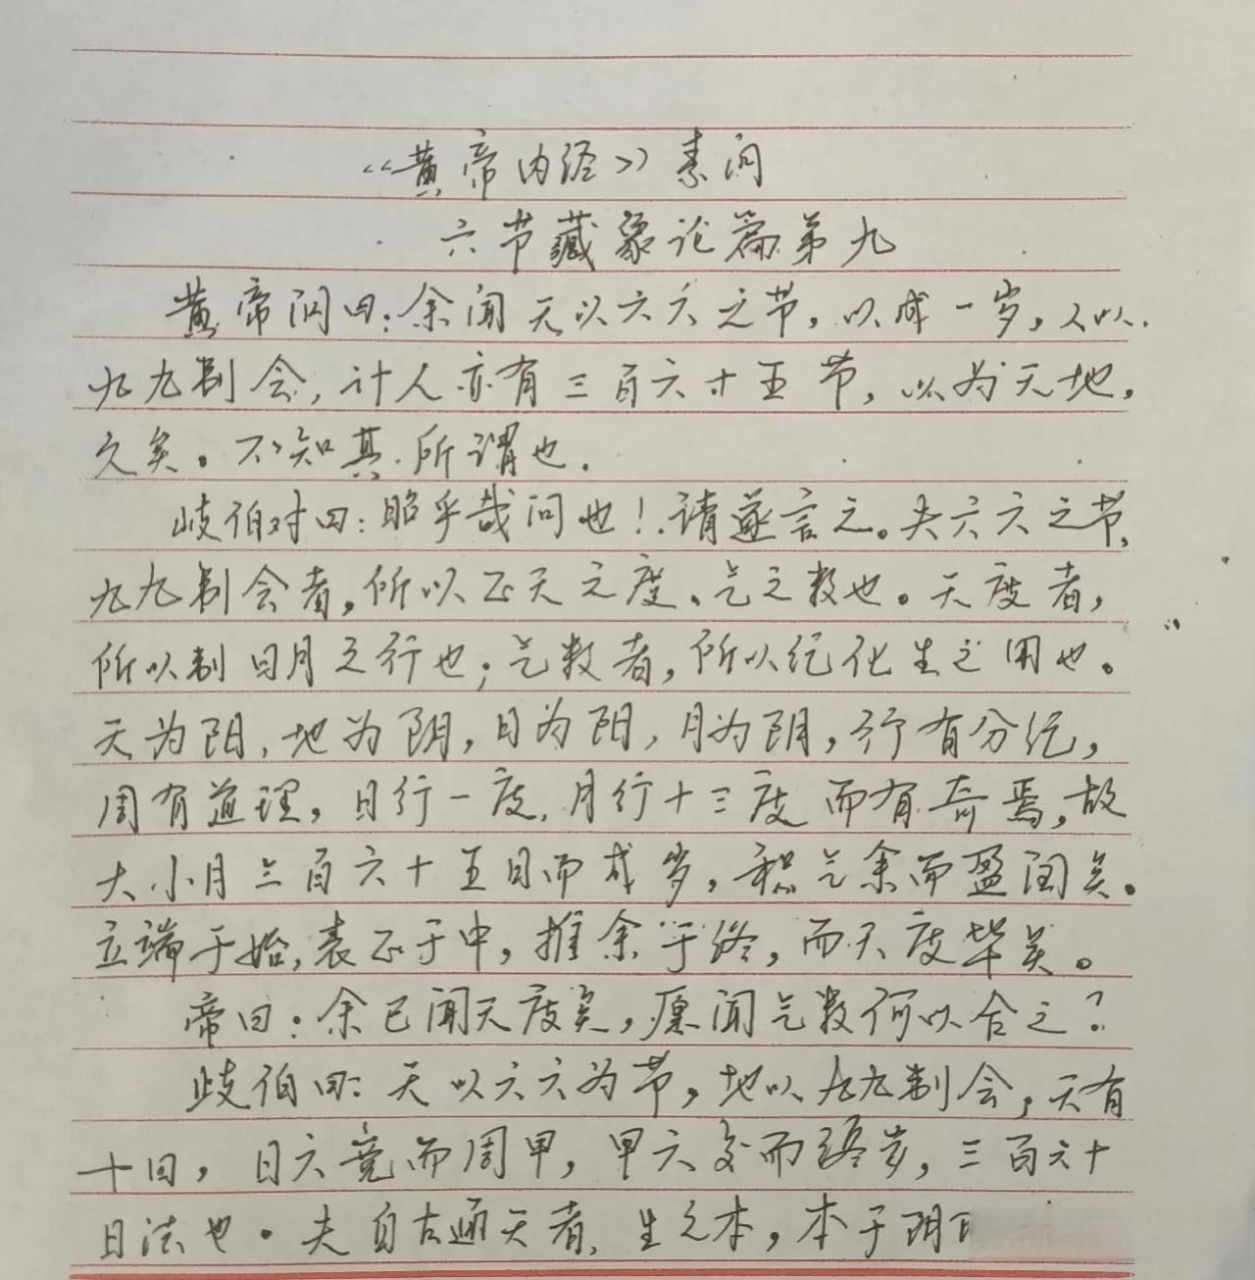 《黄帝内经》素问
六节藏象论篇第九
黄帝问曰：余闻天以六六之节，以成一岁，人以
九九制会，计人亦有三百六十五节，以为天地，
久矣。不知其所谓也.
岐伯对曰：昭乎哉问也！请遂言之。夫六六之节，
九九制会者，所以正天之度、气之数也。天度者，
所以制日月之行也；气数者，所以纪化生之用也。
天为阳，地为阴，日为阳，月为阴，行有分纪，
周有道理，日行一度，月行十三度而有奇焉，故
大小月三百六十五日而成岁，积气余而盈闰矣。
立端于始，表正于中，推余于终，而天度毕矣。
帝曰：余已闻天度矣，愿闻气数何以合之？
歧伯曰：天以六六为节，地以九九制会，天有
十日，日六竟而周甲，甲六复而终岁，三百六十
日法也。夫自古通天者，生之本，本于阴